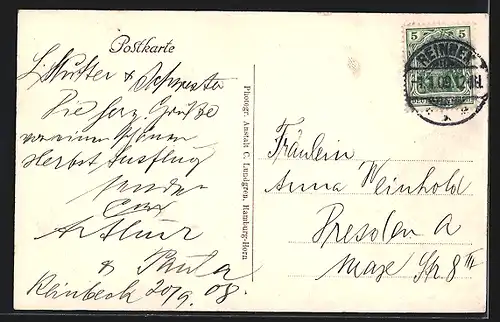 Postkarte
L. Mutter &
Die herz. Grüße
von einem schönen
Herbst Ausflug
senden
Euch
Arthur
& Paula
Reinbeck 20/9. 08.
Photogr. Anstalt C. Lundgren, Hamburg-Horn
5 5
REINBEK
Fräulein
Anna Weinhold
Dresden A
Str. 8 III